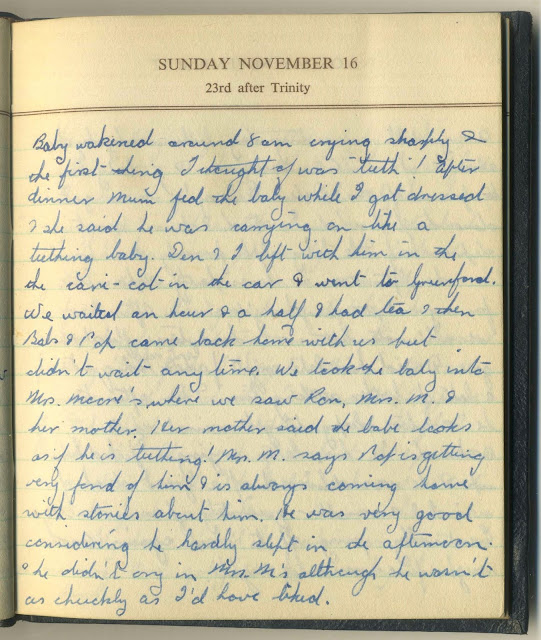 SUNDAY NOVEMBER 16
23rd after Trinity
Baby wakened around 8 am crying sharply &
the first thing I thought of was "teeth"! After
dinner Mum fed the baby while I got dressed
& she said he was carrying on like a
teething baby. Den & I left with him in the
the cari-cot in the car & went to Greenford.
We waited an hour & a half & had tea & then
Babs & Pop came back home with us but
didn't wait any time. We took the baby into
Mrs. Moore's where we saw Ron, Mrs. M. &
her mother. Her mother said the babe looks
as if he is teething! Mrs. M. says Pop is getting
very fond of him & is always coming home
with stories about him. He was very good
considering he hardly slept in the afternoon.
& he didn't cry in Mrs. M's although he wasn't
as chuckly as I'd have liked.